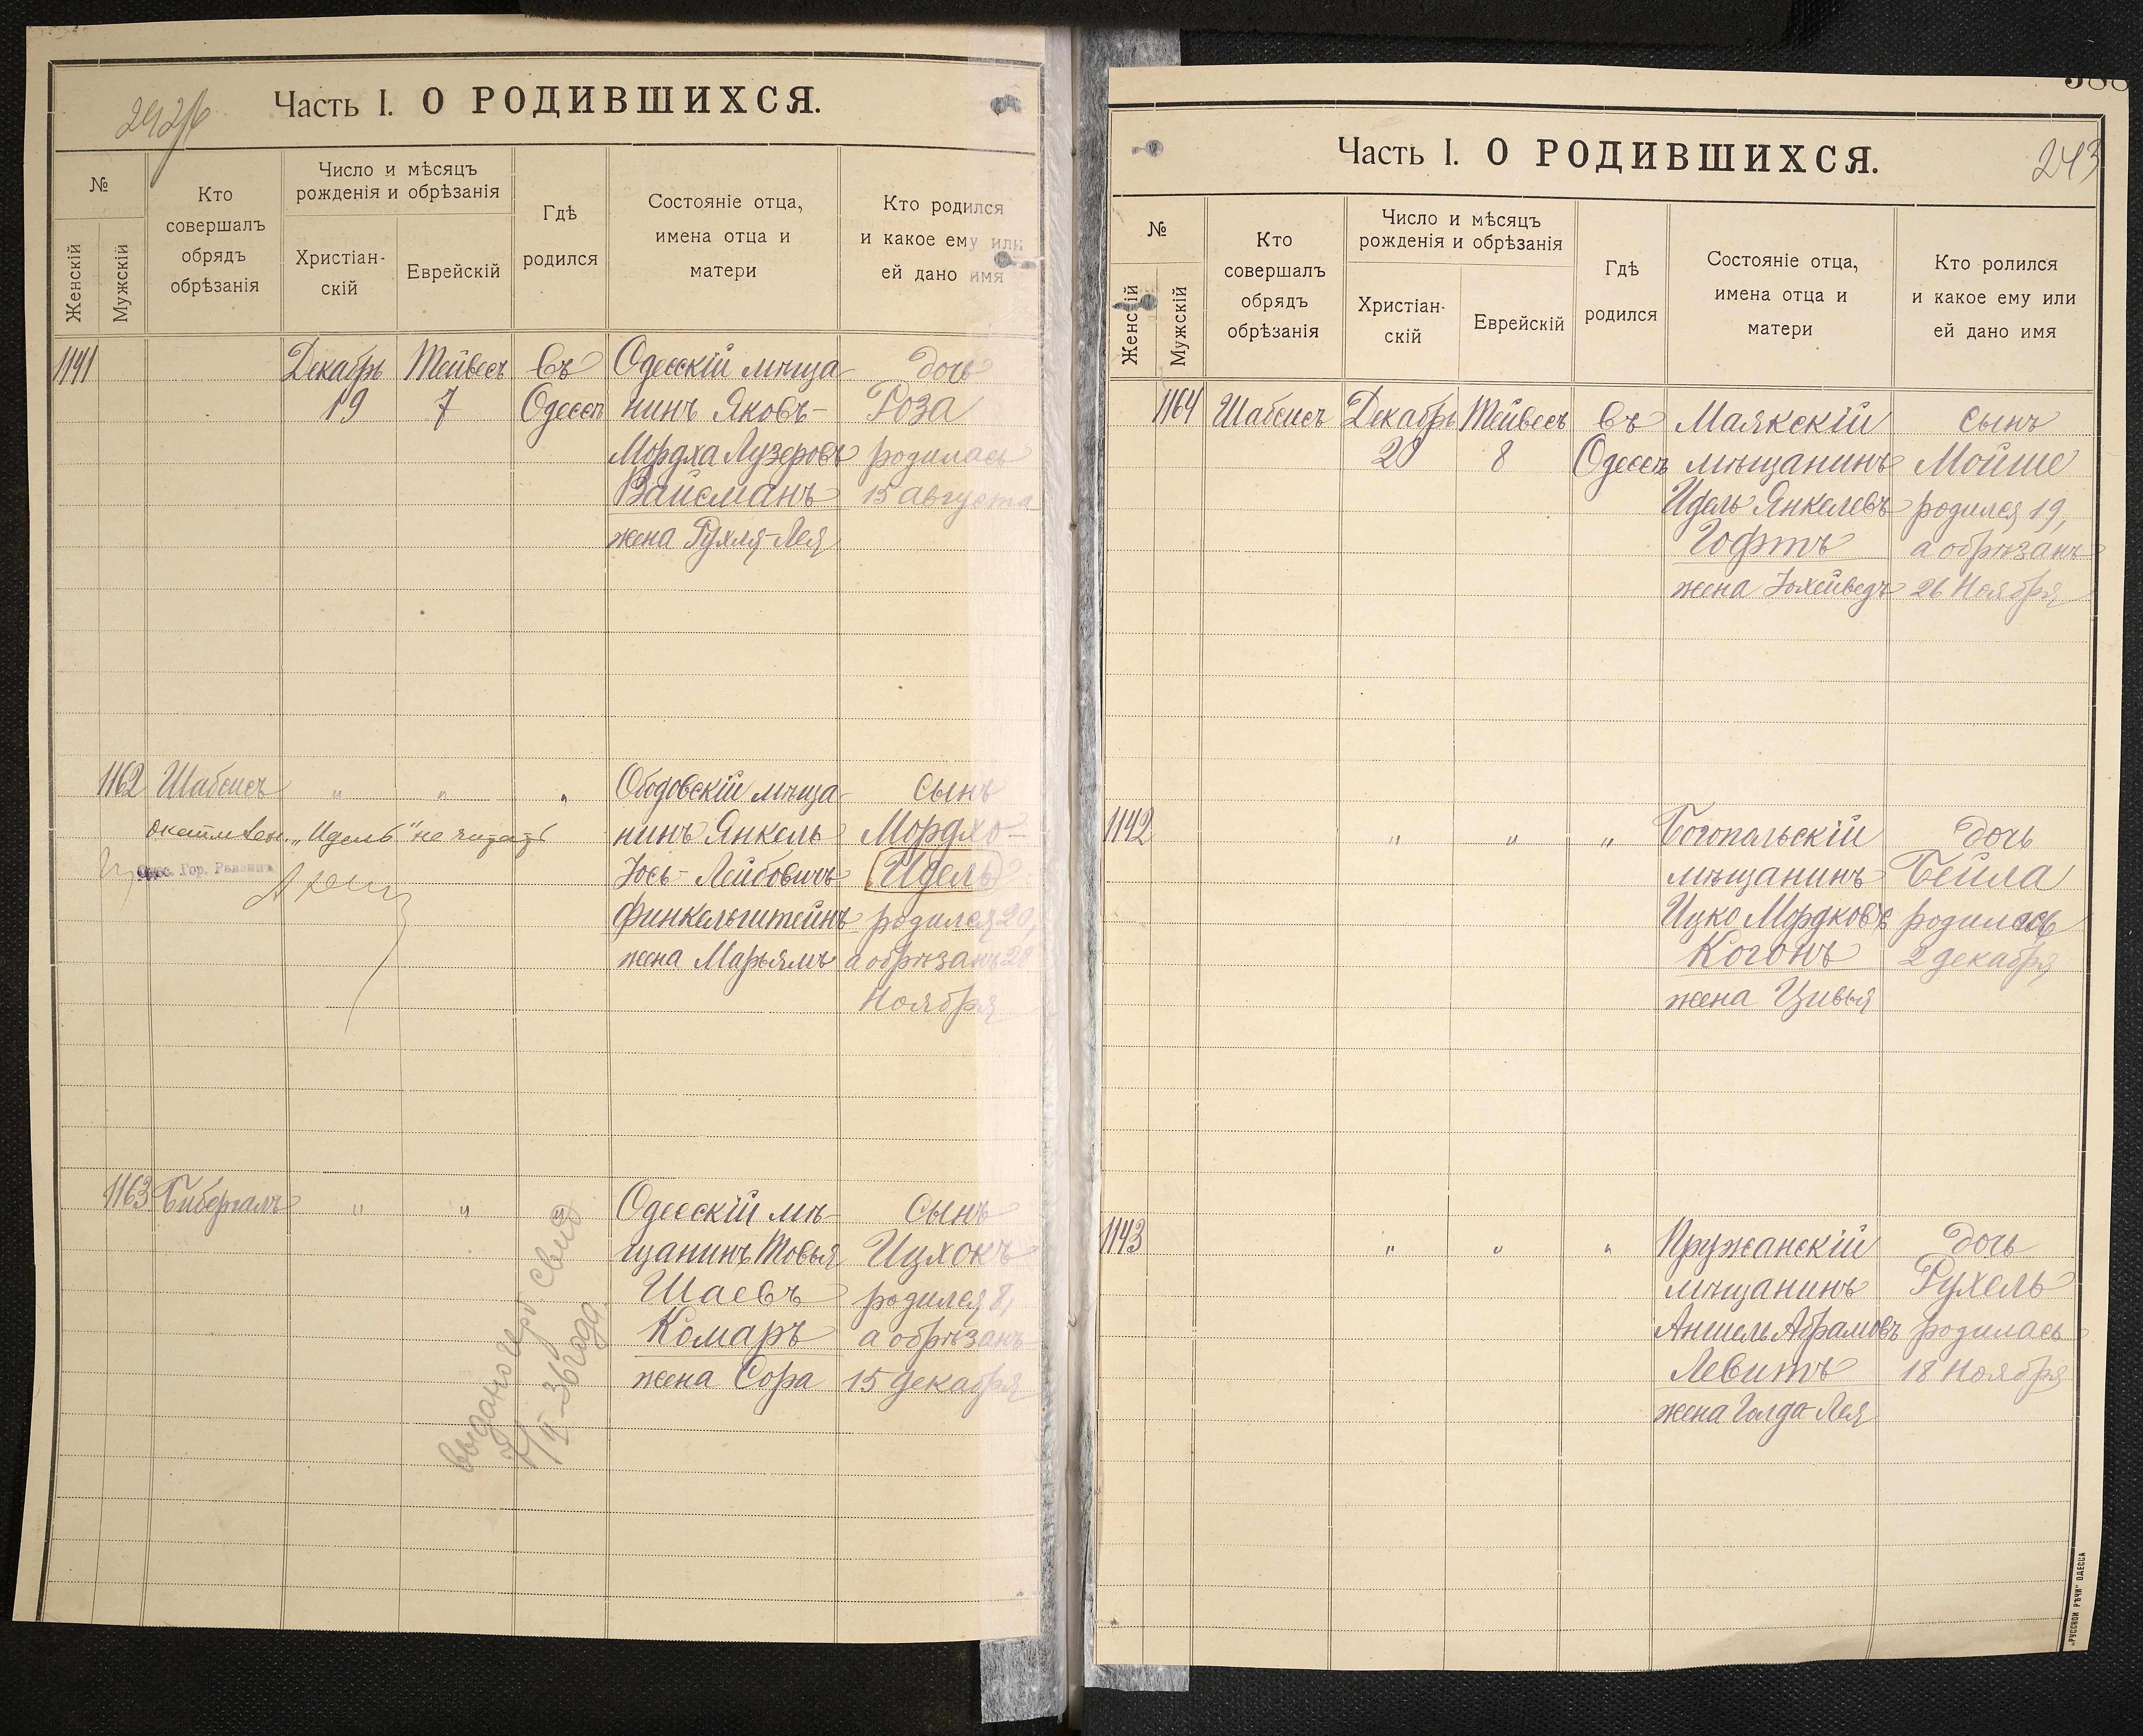 Часть I. О РОДИВШИХСЯ.
№
Женскій
Мужскій
Кто
совершалъ
обрядъ
обрѣзанія
Число и мѣсяцъ
рожденія и обрѣзанія
Христіан-
скій
Еврейскій
Гдѣ
родился
Состояніе отца,
имена отца и
матери
Кто родился
и какое ему или
ей дано имя
1141 Декабрь Тейвесъ Въ Одесскій мѣща- дочь
19 7 Одессѣ нинъ Яковъ- Роза
Мордха Лузеровъ родилась
Вайсманъ 15 августа
жена Рухля-Лея
1162 Шабсисъ " " " Ободовскій мѣща- Сынъ
"Идель" не читать нинъ Янкель Мордхо-
Іось-Лейбовичъ Идель
Одес. Гор. Раввинъ
Финкельштейнъ родился 20,
жена Марьямъ а обрѣзанъ 28
Ноября
1163 Бибергалъ " " " Одесскій мѣ- Сынъ
щанинъ Товья Ицхокъ
Шаевъ родился 8,
Комаръ а обрѣзанъ
жена Сора 15 декабря
выдано
36 года
Часть I. О РОДИВШИХСЯ.
243
№
Женскій
Мужскій
Кто
совершалъ
обрядъ
обрѣзанія
Число и мѣсяцъ
рожденія и обрѣзанія
Христіан-
скій
Еврейскій
Гдѣ
родился
Состояніе отца,
имена отца и
матери
Кто ролился
и какое ему или
ей дано имя
1164 Шабсисъ Декабрь Тейвесъ Въ Маякскій Сынъ
20 8 Одессѣ мѣщанинъ Мойше
Идель Янкелевъ родился 19,
Гофтъ а обрѣзанъ
жена Юхейведъ 26 Ноября
1142 " " " Богопольскій дочь
мѣщанинъ Бейла
Ицко Мордковъ родилась
Когонъ 2 декабря
жена Цивья
1143 " " " Пружанскій дочь
мѣщанинъ Рухель
Аншель Абрамовъ родилась
Левитъ 18 Ноября
жена Голда-Лея
„РУССКОЙ РѢЧИ" ОДЕССА